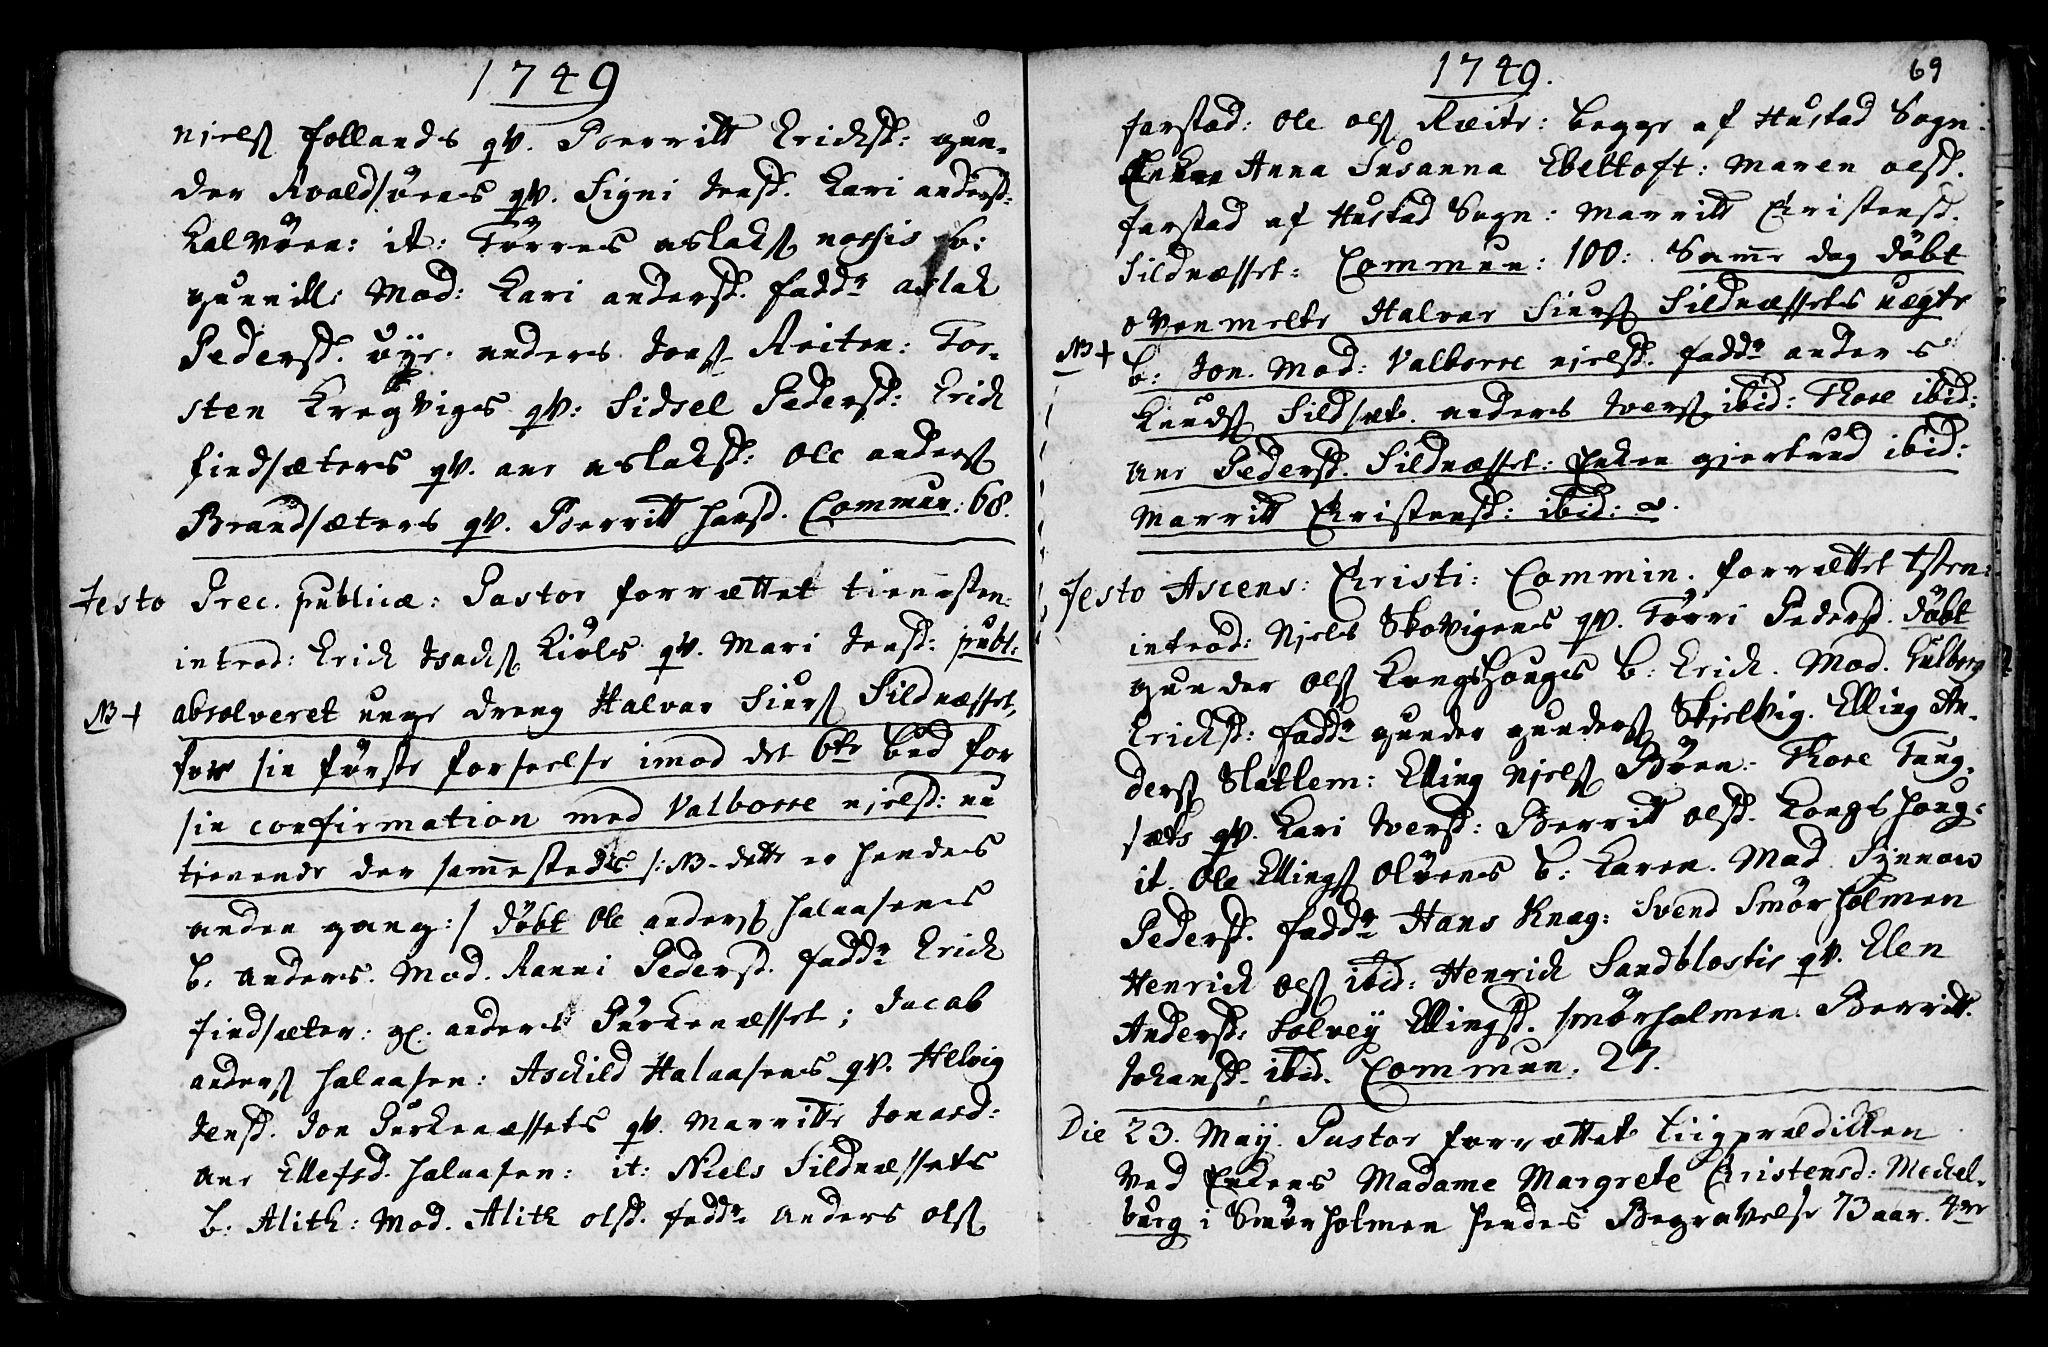 1749
Njels Follands qv. Berritt Erichsd: Gun-
der Roaldsöens qv. Signi Jensd. Kari Andersd:
Kalvöen: it: Törres Aslaks b:
Gunnild: Mod: Kari Andersd. Fadd: Aslak
Pedersd. Anders Jons Reiten: Tor-
sten Kregviges qv: Sidsel Pedersd: Erich
Findsæters qv. Ane Aslaksd: Ole Anders
Brandsæters qv. Berritt Hansd. Commun: 68.
Festo Prec. publicæ: Pastor forrættet tienesten:
introd: Erich Isachs Kiöls qv. Mari Jensd: publ:
NB + absolveret unge dreng Halvar Siurs Sildnæsset,
for sin förste forseelse imod det 6te bud for
sin confirmation med Valborre Njelsd: nu
tienende der sammesteds /: NB dette er hendes
anden gang: / döbt Ole Anders Halaasens
b: Anders. Mod. Ranni Pedersd. Fadd: Erich
Findsæter: gl. Anders Purkenæsset; Jacob
Anders Halaasen: Aschild Halaasens qv. Helvig
Jensd. Jon Purkenæssets qv. Marritte Jonasd:
Ane Ellefsd. Halaasen: it: Niels Sildnæssets
b: Alith: Mod. Alith Olsd. Fadd: Anders Ols
1749.
69
Farstad: Ole Ols Reite: begge af Hustad Sogn.
Enken Anna Susanna Ebeltoft: Maren Olsd.
Farstad af Hustad Sogn: Marritt Christensd.
Sildnæsset: Commun: 100: Samme dag döbt
ovenmelte Halvar Siurs Sildnæssets uægte
NB + b: Jon. Mod: Valborre Njelsd. Fadd: Anders
Knuds Anders Ivers ibid: Thore ibid:
Ane Pedersd. Sildnæsset: Enken Gjertrud ibid:
Marritt Christensd: ibid:
Festo Ascens: Christi: Commin. forrættet tsten:
introd: Njels Skovigens qv. Törri Pedersd. Döbt
Gunder Ols Kongshougs b: Erich. Mod. Gulborg
Erichsd: Fadd: Gunder Gunders Skjelvig. Elling An-
ders Slatlem: Elling Njels Böen: Thore Tung-
sæts qv. Kari Iversd: Berritt Olsd. Kongshoug:
it. Ole Ellings Olöens b: Karen. Mod Synnow
Pedersd. Fadd: Hans Knag: Svend Smörholmen
Henrich Ols ibid: Henrich Sandblostis qv. Elen
Andersd: Solvey Ellingsd. Smörholmen: Berritt
Johansd. ibid. Commun. 27.
Die 23. May. Pastor forrættet Liigprædikken
ved Enkens Madame Margrete Christensd: Mechel-
burg i Smörholmen hendes Begravelse 73 aar. 4re